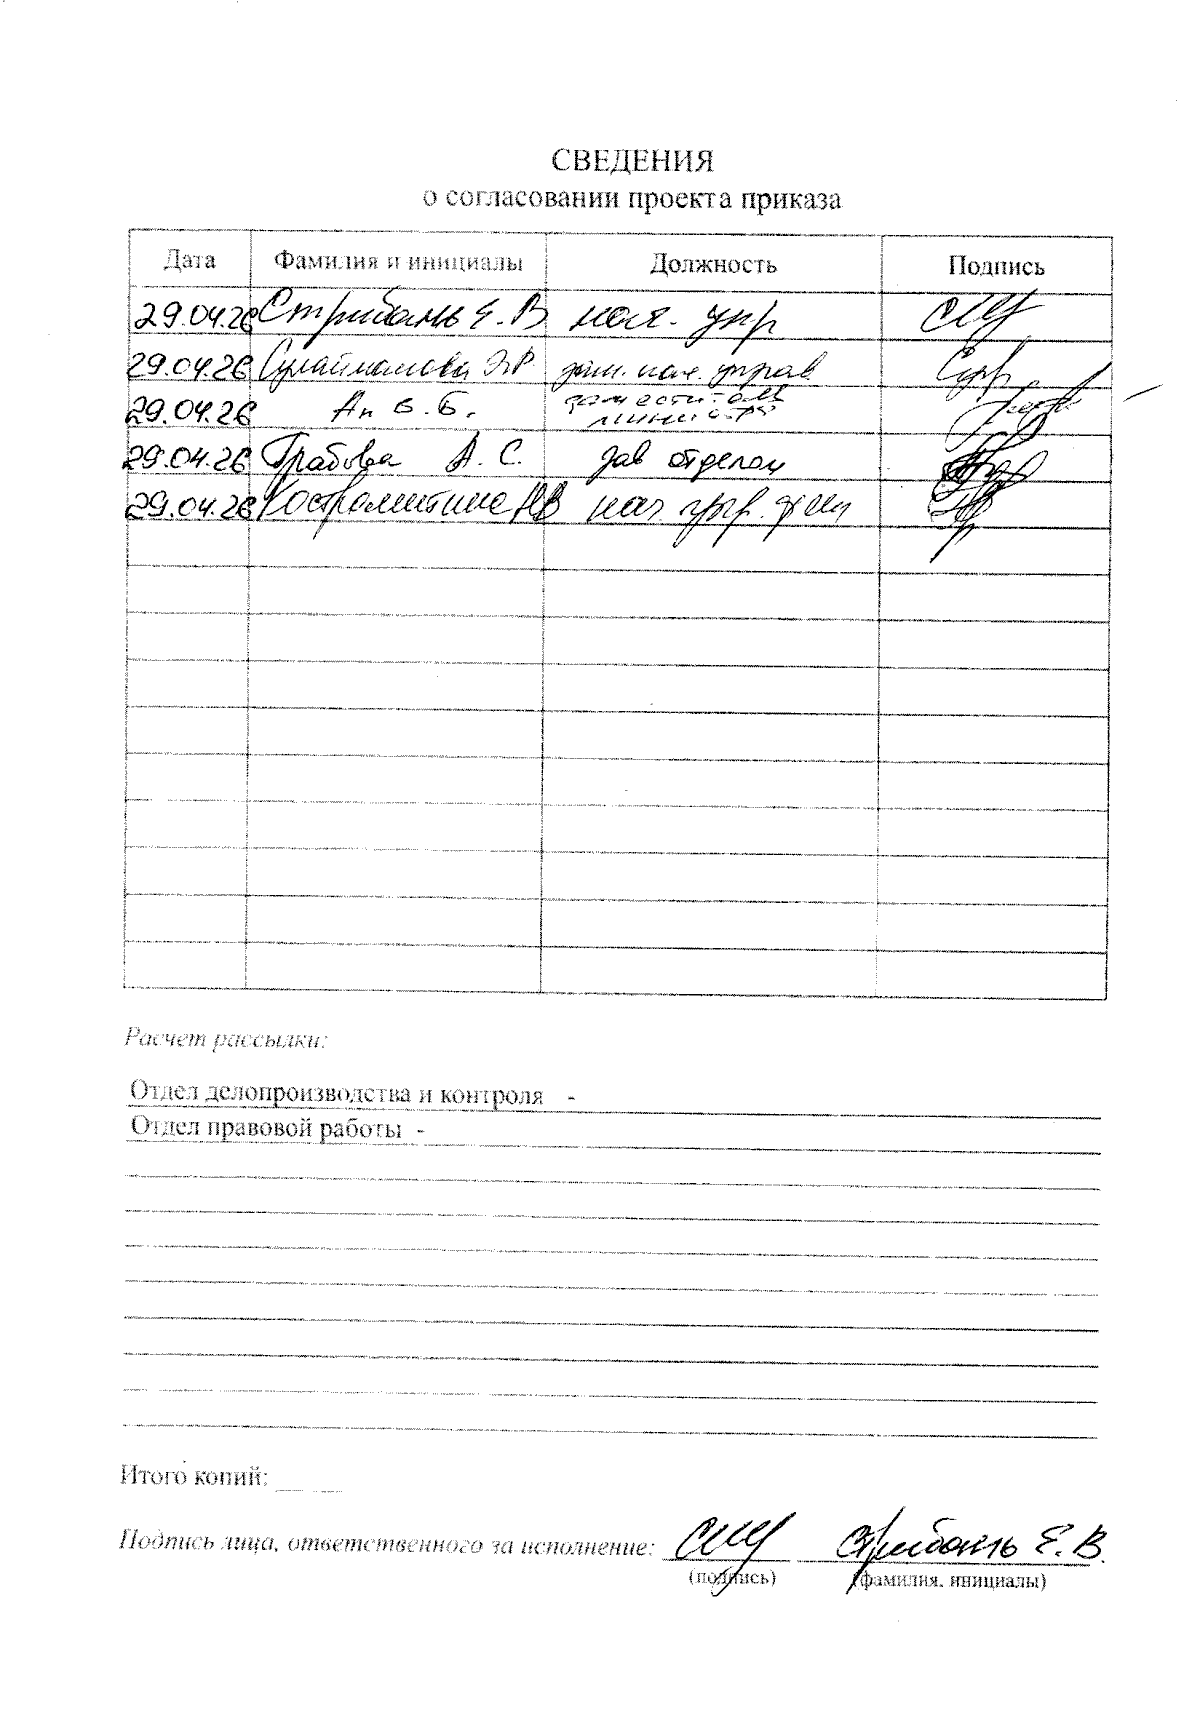 СВЕДЕНИЯ
о согласовании проекта приказа
Дата Фамилия и инициалы Должность Подпись
29.04.26 Стрибань Е.В нач. упр
29.04.26 Сулайманова Э.Р. зам. нач. управ.
29.04.26 Ан В.Б. заместитель
министра
29.04.26 Грабова А.С. зав отделом
29.04.26 Костромитина НВ нач.
Расчет рассылки:
Отдел делопроизводства и контроля -
Отдел правовой работы -
Итого копий:
Подпись лица, ответственного за исполнение: Стрибань Е.В.
(подпись) (фамилия, инициалы)